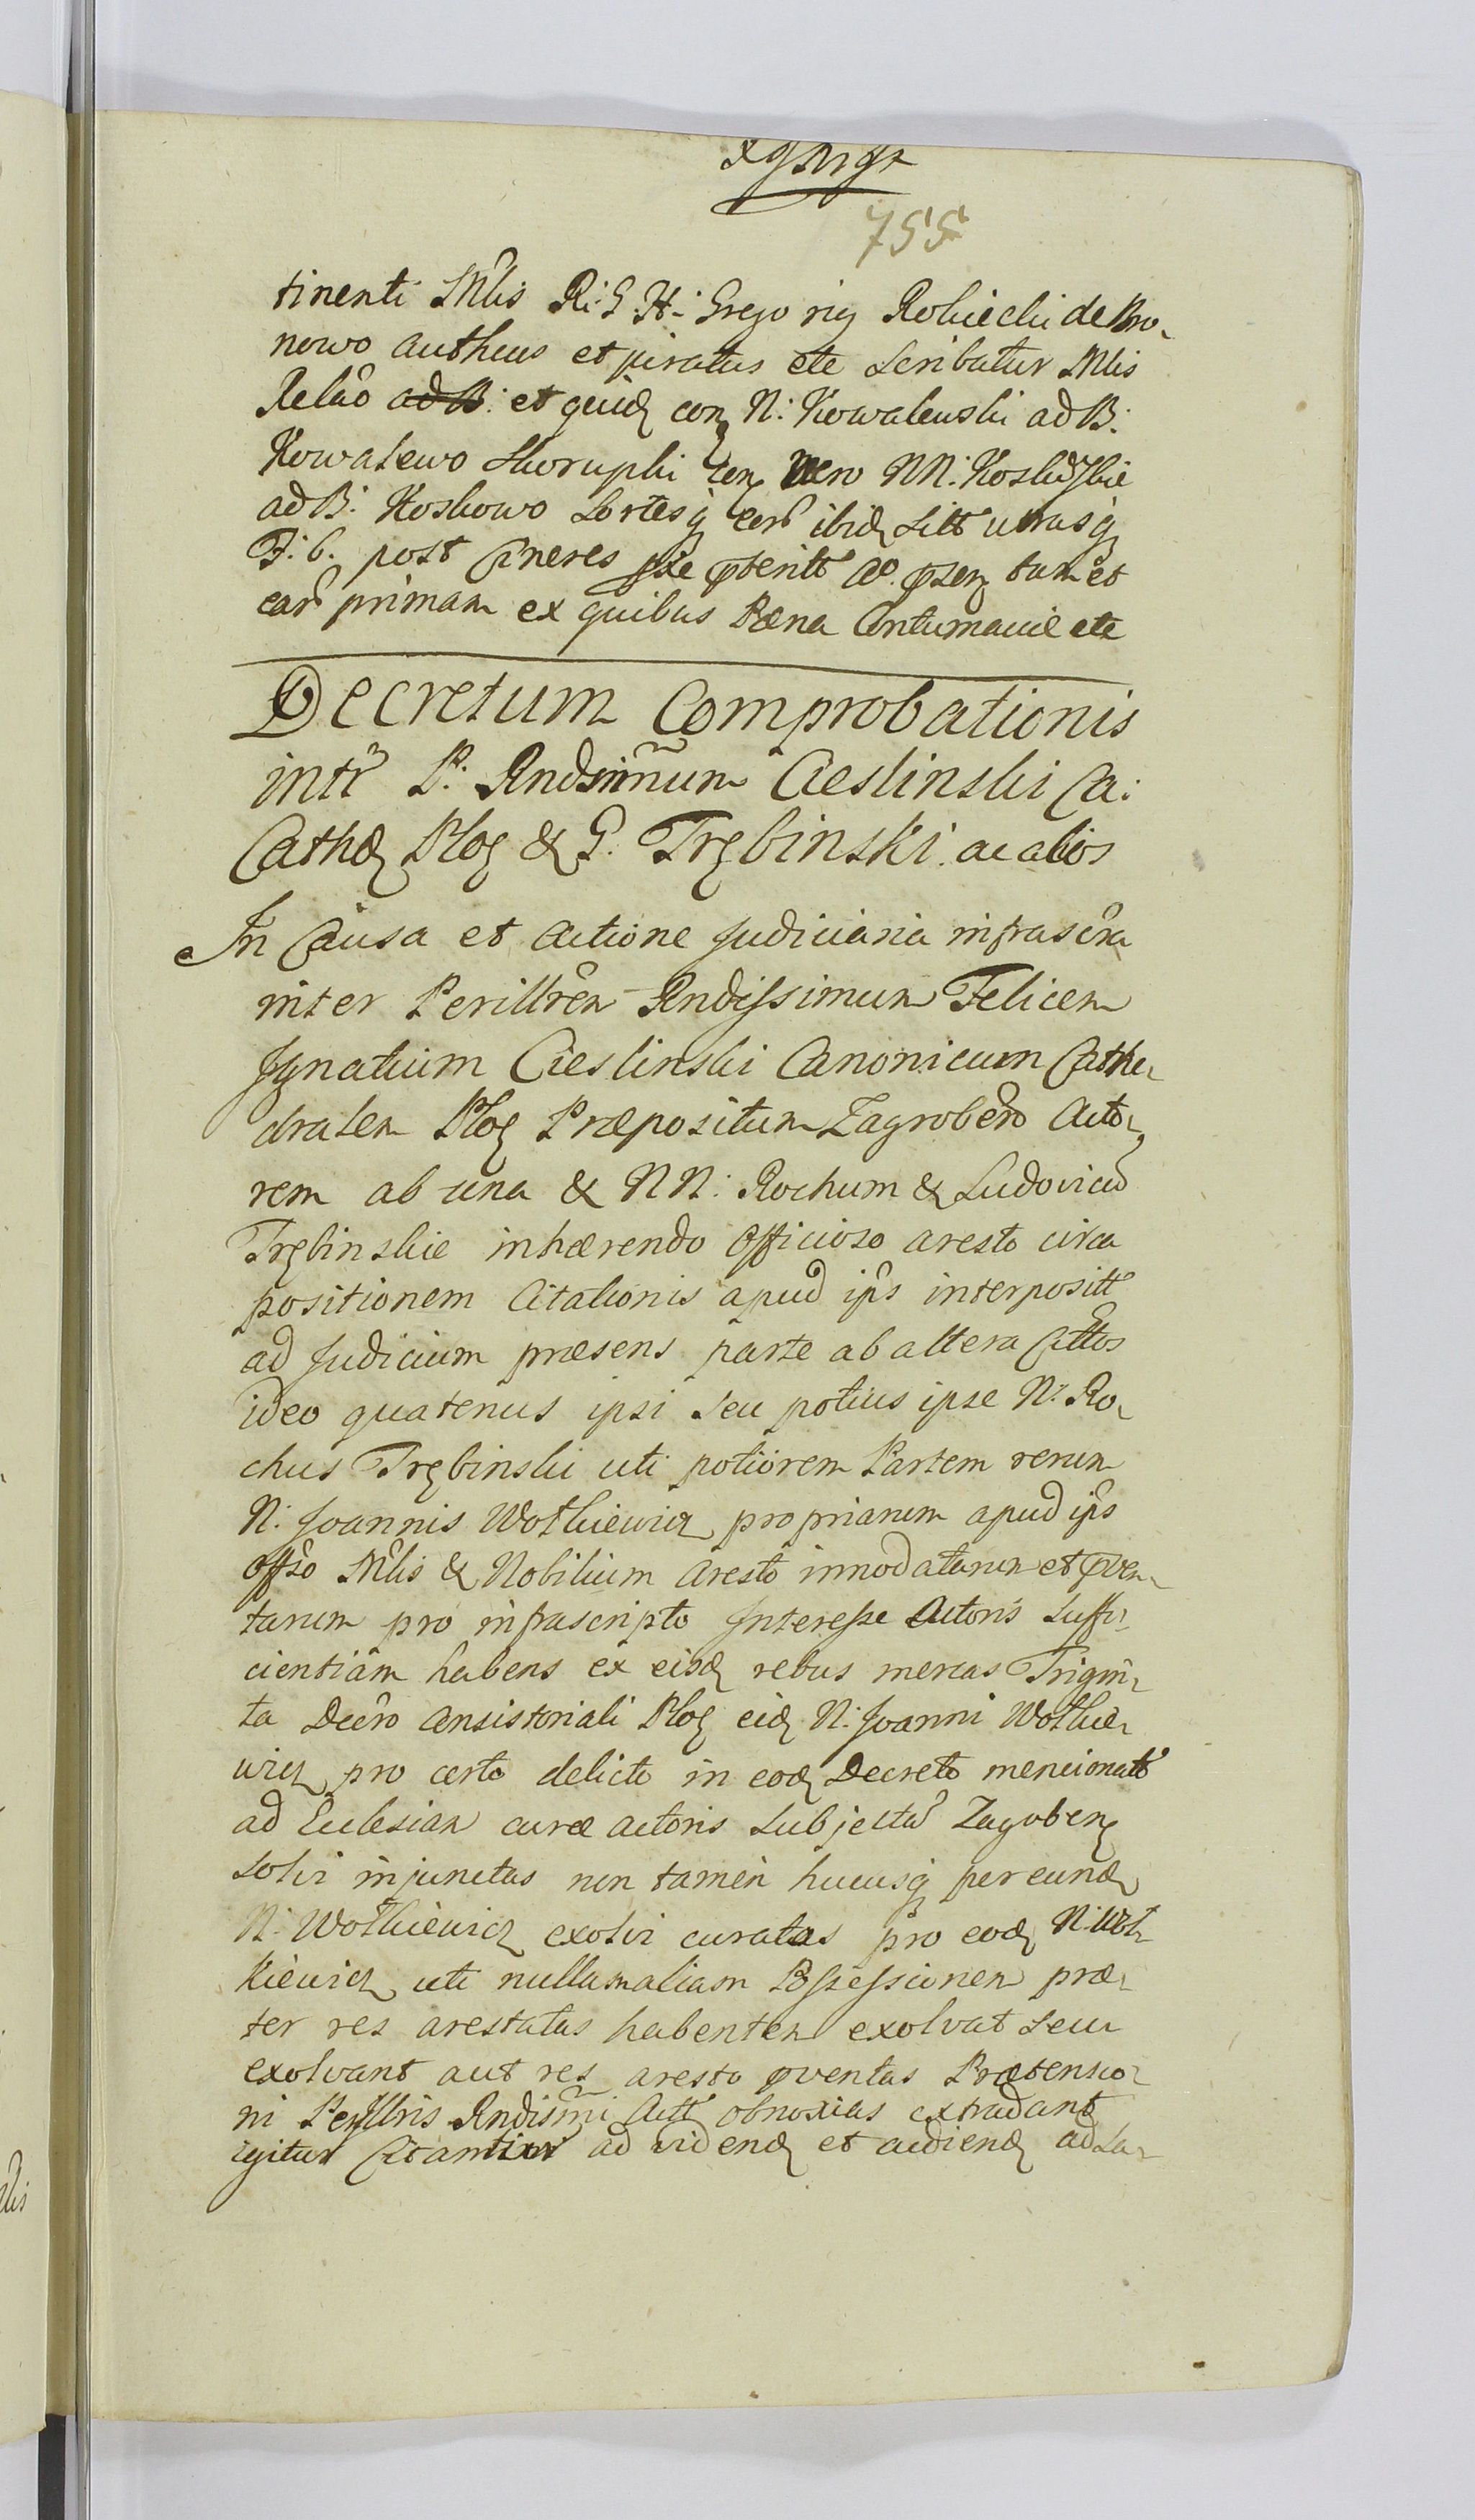 755
tinenti Mlis R: G. H: Gregorig Rokicki de Bro-
nowo authens et juratus etc Scribatur Mlis
Relâo ad B: et quidę conę N: Kowalewski ad B:
Kowalewo Skorupki conę vero NN: Koskȩskie
ad B: Koskowo Sortesqȩ eor̃ ibidę sitt̃ utrasqȩ
F: C. post Cineres pterit̃ Ao. pzenę tum et
ear̃ primam ex quibus Pæna Contumaciæ etc
Decretum Comprobationis
intr̃ P: Rndsim̃um Cieslinski Ca:
Cathę Ploę & G. Trębinski ac alios
In Causa et actione Judiciaria infrascr̃a
inter Perillr̃em Rndissimum Felicem
Ignatium Cieslinski Canonicum Cathe-
dralem Ploę Præpositum Zagrobeñ Acto-
rem ab una & NN: Rochum & Ludovicũ
Trębinskie inhærendo Officioso aresto circa
positionem Citationis apud ip̃s interposit̃t
ad Judicium præsens parte ab altera Citt̃os
ideo quatenus ipsi seu potius ipse N: Ro-
chus Trębinski uti potiorem Partem rerum
N: Joannis Wotkiewicz propriarum apud ip̃s
Off̃so Mlis & Nobilium aresto innodatarum et pven-
tarum pro infrascripto Interesse Actoris suffi-
cientiam habens ex eisdę rebus marcas Trigin-
ta Decr̃o Consistoriali Ploę eidę N: Joanni Wotkie-
wicz pro certo delicto in eodę Decreto mencionat̃o
ad Ecclesiam curæ actoris subjectã Zagrobenę
solvi injunctas non tamen hucusqȩ per eundę
N: Wotkiewicz exolvi curatas pro eodę N: Wot-
kiewicz uti nullam aliam Possessionem præ-
ter res arestatas habentem exolvat seu
exolvant aut res aresto pventas Prætensio-
ni Perillris Rndism̃i Actt̃ obnoxias extradant
igitur Citantur ad videndę et audiendę ad sa-